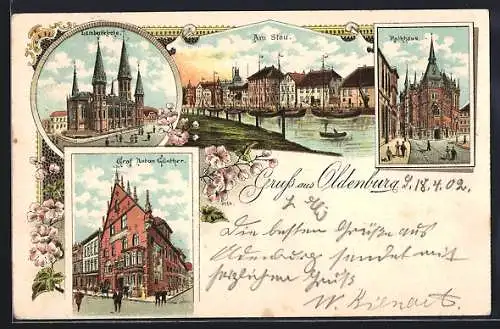 Lambertikirche.
Am Stau.
Rathhaus.
Graf Anton Günther.
Gruß aus Oldenburg 9. 18.4.02.
Die besten Grüße aus
Oldenburg sendet mit
herzlichem Gruß
W.